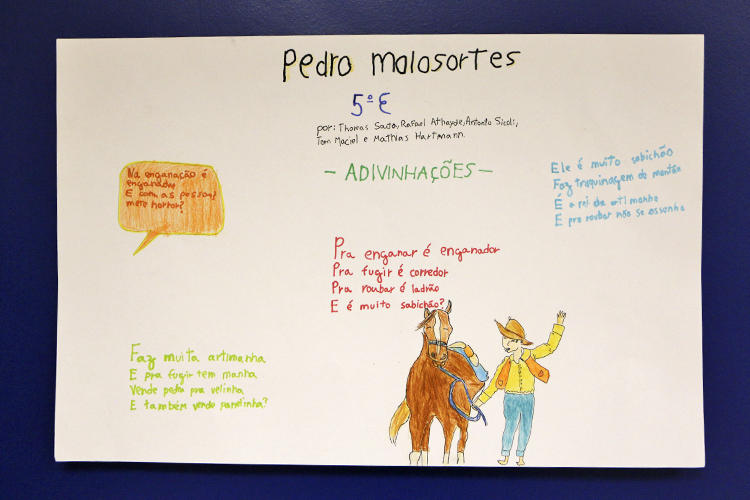 Pedro Malasortes
5º E
por: Thomas Sada, Rafael Athayde, Antonio Sicoli,
Tom Maciel e Mathias Hartmann.
- ADIVINHAÇÕES -
Na enganação é
enganador
E com as pessoas
mete horror?
Ele é muito sabichão
Faz traquinagem de montão
É o rei da artimanha
E pra roubar não se assanha
Pra enganar é enganador
Pra fugir é corredor
Pra roubar é ladrão
E é muito sabichão?
Faz muita artimanha
E pra fugir tem manha
Vende pedra pra velinha
E também vende panelinha?